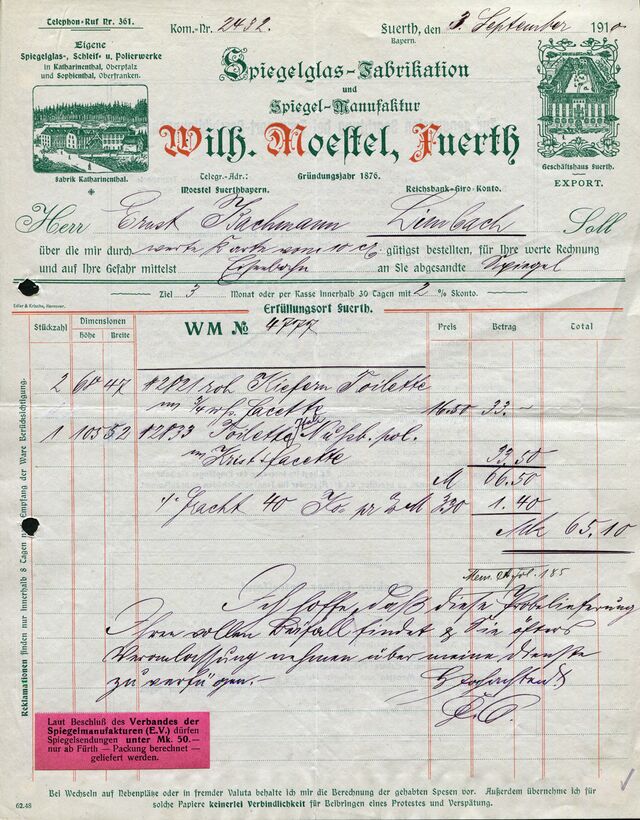 Telephon-Ruf Nr. 361.
Kom.-Nr. 2482.
Fuerth, den 3. September 1910
Bayern.
Eigene
Spiegelglas-, Schleif- u. Polierwerke
in Katharinenthal, Oberpfalz
und Sophienthal, Oberfranken.
Spiegelglas-Fabrikation
und
Spiegel-Manufaktur
Wilh. Moestel, Fuerth
Fabrik Katharinenthal.
Telegr.-Adr.:
Moestel Fuerthbayern.
Gründungsjahr 1876.
Reichsbank-Giro-Konto.
Geschäftshaus Fuerth.
EXPORT.
Herr Ernst Bachmann Limbach Soll
über die mir durch werte Karte vom 10 gütigst bestellten, für Ihre werte Rechnung
und auf Ihre Gefahr mittelst Eisenbahn an Sie abgesandte Spiegel
Ziel 3 Monat oder per Kasse innerhalb 30 Tagen mit 2 % Skonto.
Edler & Krische, Hannover.
Erfüllungsort Fuerth.
Stückzahl Dimensionen Höhe Breite WM No 4777 Preis Betrag Total
2 60 47 #2021 roh Kiefern Toilette
m 3/4 Facette 16.50 33.–
1 105 52 #2033 Toilette Nußb. pol.
m Kristfacette 33.50
M 66.50
Fracht 40 Ko pr % M 330 1.40
Mk 65.10
Ich hoffe, daß diese Probelieferung
Ihren vollen Beifall findet & Sie öfters
Veranlassung nehmen über meine Dienste
zu verfügen.–
Reklamationen finden nur innerhalb 8 Tagen nach Empfang der Ware Berücksichtigung.
Laut Beschluß des Verbandes der
Spiegelmanufakturen (E.V.) dürfen
Spiegelsendungen unter Mk. 50.—
nur ab Fürth — Packung berechnet —
geliefert werden.
Bei Wechseln auf Nebenplätze oder in fremder Valuta behalte ich mir die Berechnung der gehabten Spesen vor. Außerdem übernehme ich für
solche Papiere keinerlei Verbindlichkeit für Beibringen eines Protestes und Verspätung.
62.48